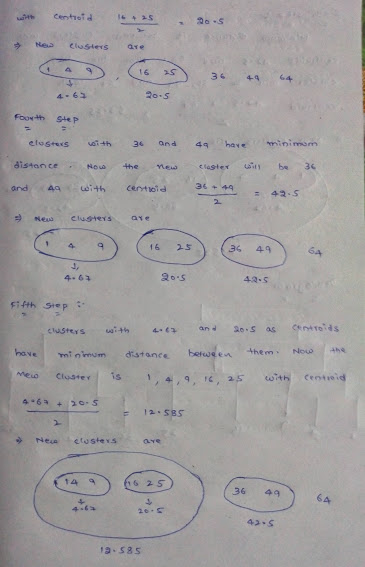 with centroid 16 + 25 / 2 = 20.5
⇒ New clusters are
1 4 9 , 16 25 36 49 64
↓
4.67 20.5
Fourth Step
clusters with 36 and 49 have minimum
distance. Now the new cluster will be 36
and 49 with centroid 36 + 49 / 2 = 42.5
⇒ New clusters are
1 4 9 16 25 36 49 64
↓
4.67 20.5 42.5
Fifth Step :-
clusters with 4.67 and 20.5 as centroids
have minimum distance between them. Now the
new cluster is 1, 4, 9, 16, 25 with centroid
4.67 + 20.5 / 2 = 12.585
⇒ New clusters are
1 4 9 16 25 36 49 64
↓ ↓
4.67 20.5 42.5
12.585